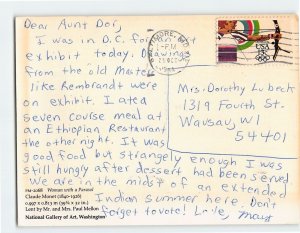 Dear Aunt Dor,
I was in D.C. for
exhibit today. Drawings
from the old Masters
like Rembrandt were
on exhibit. I ate a
seven course meal at
an Ethiopian Restaurant
the other night. It was
good food but strangely enough I was
still hungry after dessert had been served
We are in the midst of an extended
Indian summer here. Don't
forget to vote! Love, Mary
Mrs. Dorothy Lubeck
1319 Fourth St.
Wausau, WI
54401
BALTIMORE, MD
PM
USA
Woman with a Parasol
Claude Monet (1840-1926)
Lent by Mr. and Mrs. Paul Mellon
National Gallery of Art, Washington